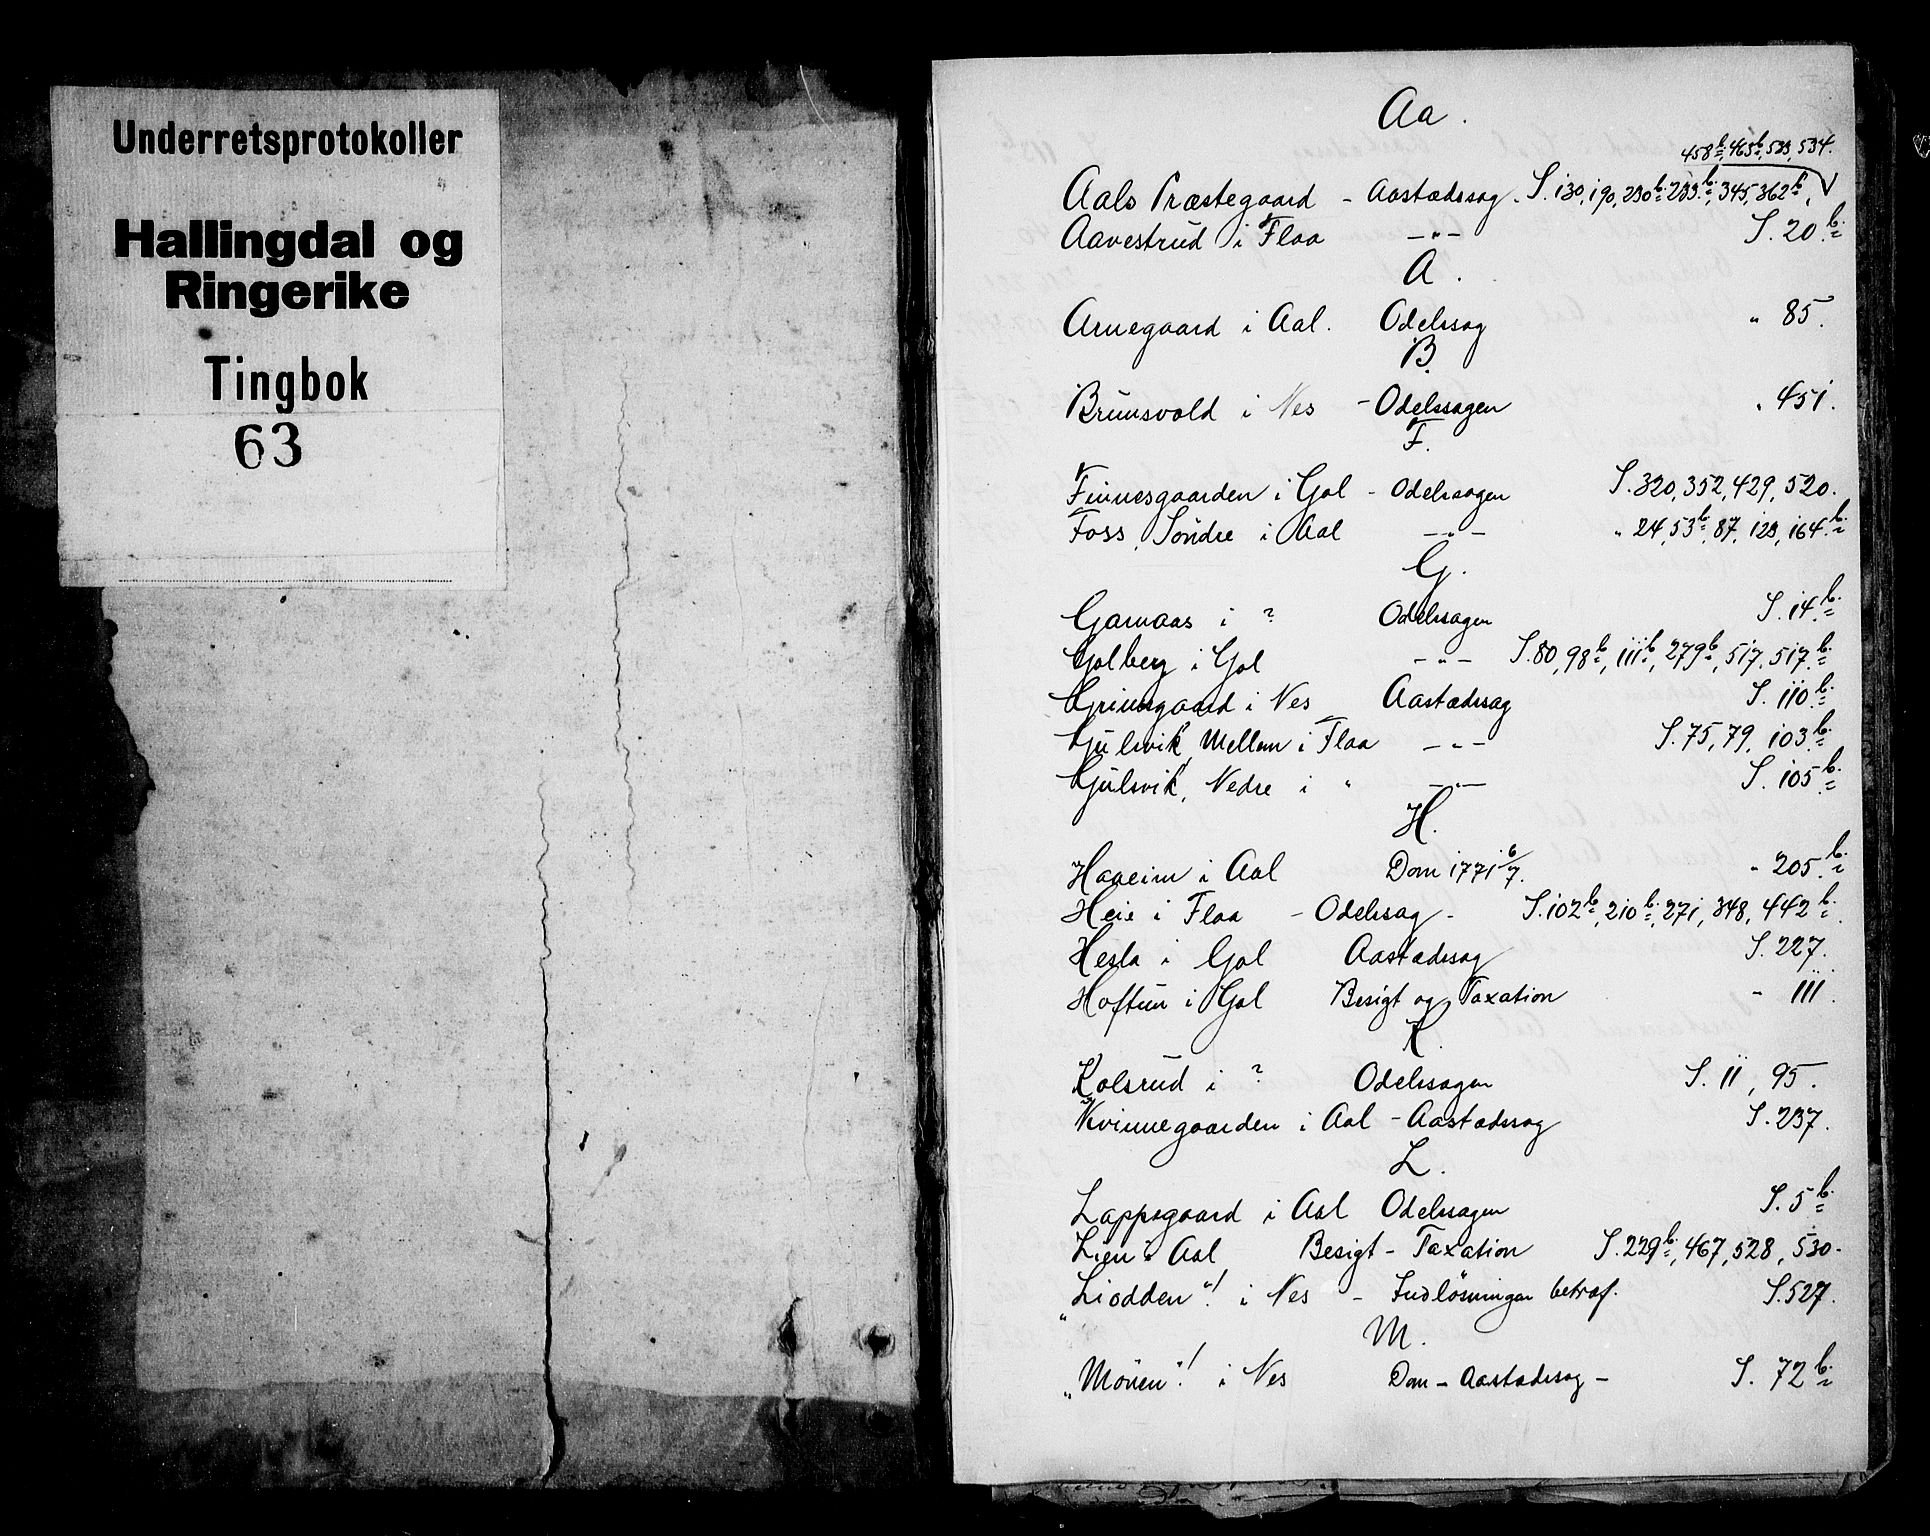 Underretsprotokoller
Hallingdal og
Ringerike
Tingbok
63
Aa.
458b, 465b, 533, 534.
Aals Præstegaard - Aastædssag. S. 130, 190, 230b, 233b, 345, 362b,
Aavestrud i Flaa -"- S. 20b.
A.
Arnegaard i Aal. Odelssag " 85.
B.
Brunsvold i Nes - Odelssagen " 451.
F.
Finnesgaarden i Gol - Odelssagen S. 320, 352, 429, 520.
Foss, Söndre i Aal -"- " 24, 53b, 87, 123, 164b.
G.
Garnaas i ? Odelssagen S. 14b.
Golberg i Gol -"- S. 80, 98b, 111b, 279b, 517, 517b.
Grimsgaard i Nes Aastædssag S. 110b.
Gulsvik, Mellem i Flaa -"- S. 75, 79, 103b.
Gulsvik, Nedre i " -"- S. 105b.
H.
Haaeim i Aal Dom 1771 6/7. " 205b.
Heie i Flaa - Odelssag - S. 102b, 210b, 271, 348, 442b.
Hesla i Gol Aastædssag S. 227.
Hoftun i Gol Besigt og Taxation " 111.
K.
Kolsrud i ? Odelssagen S. 11, 95.
Kvinnegaarden i Aal - Aastædssag S. 237.
L.
Lappegaard i Aal Odelssagen S. 5b.
Lien i Aal Besigt - Taxation S. 229b, 467, 528, 530.
"Liodden"! i Nes - Indlösningen betræf. S. 527.
M.
"Mönen"! i Nes Dom - Aastædssag - S. 72b.